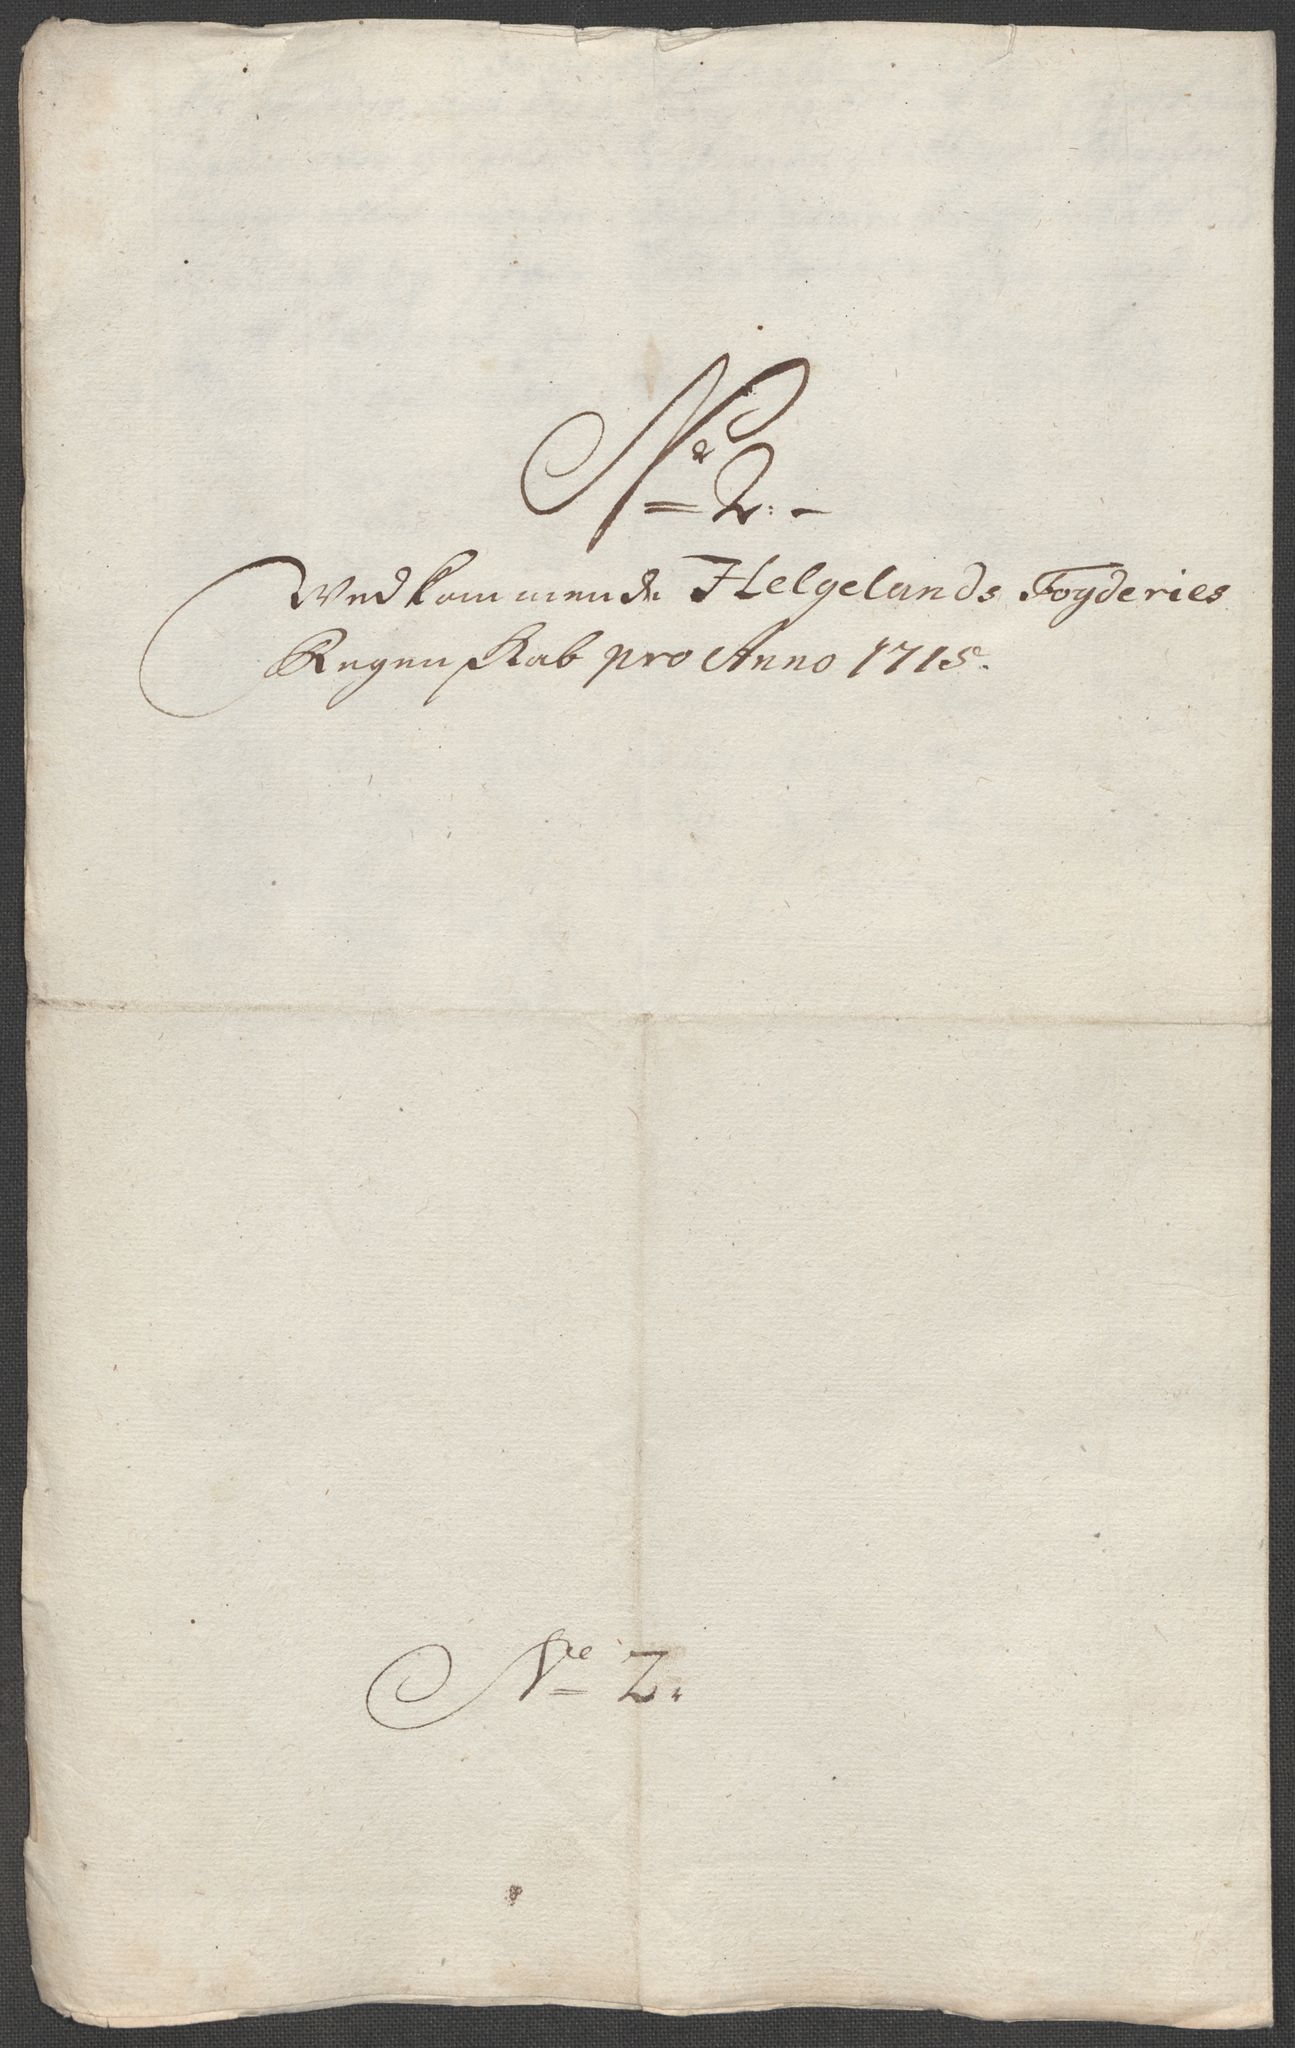 No 2.
Vedkommende Helgelands Fogderies
Regenskab pro Anno 1715.
No 2.